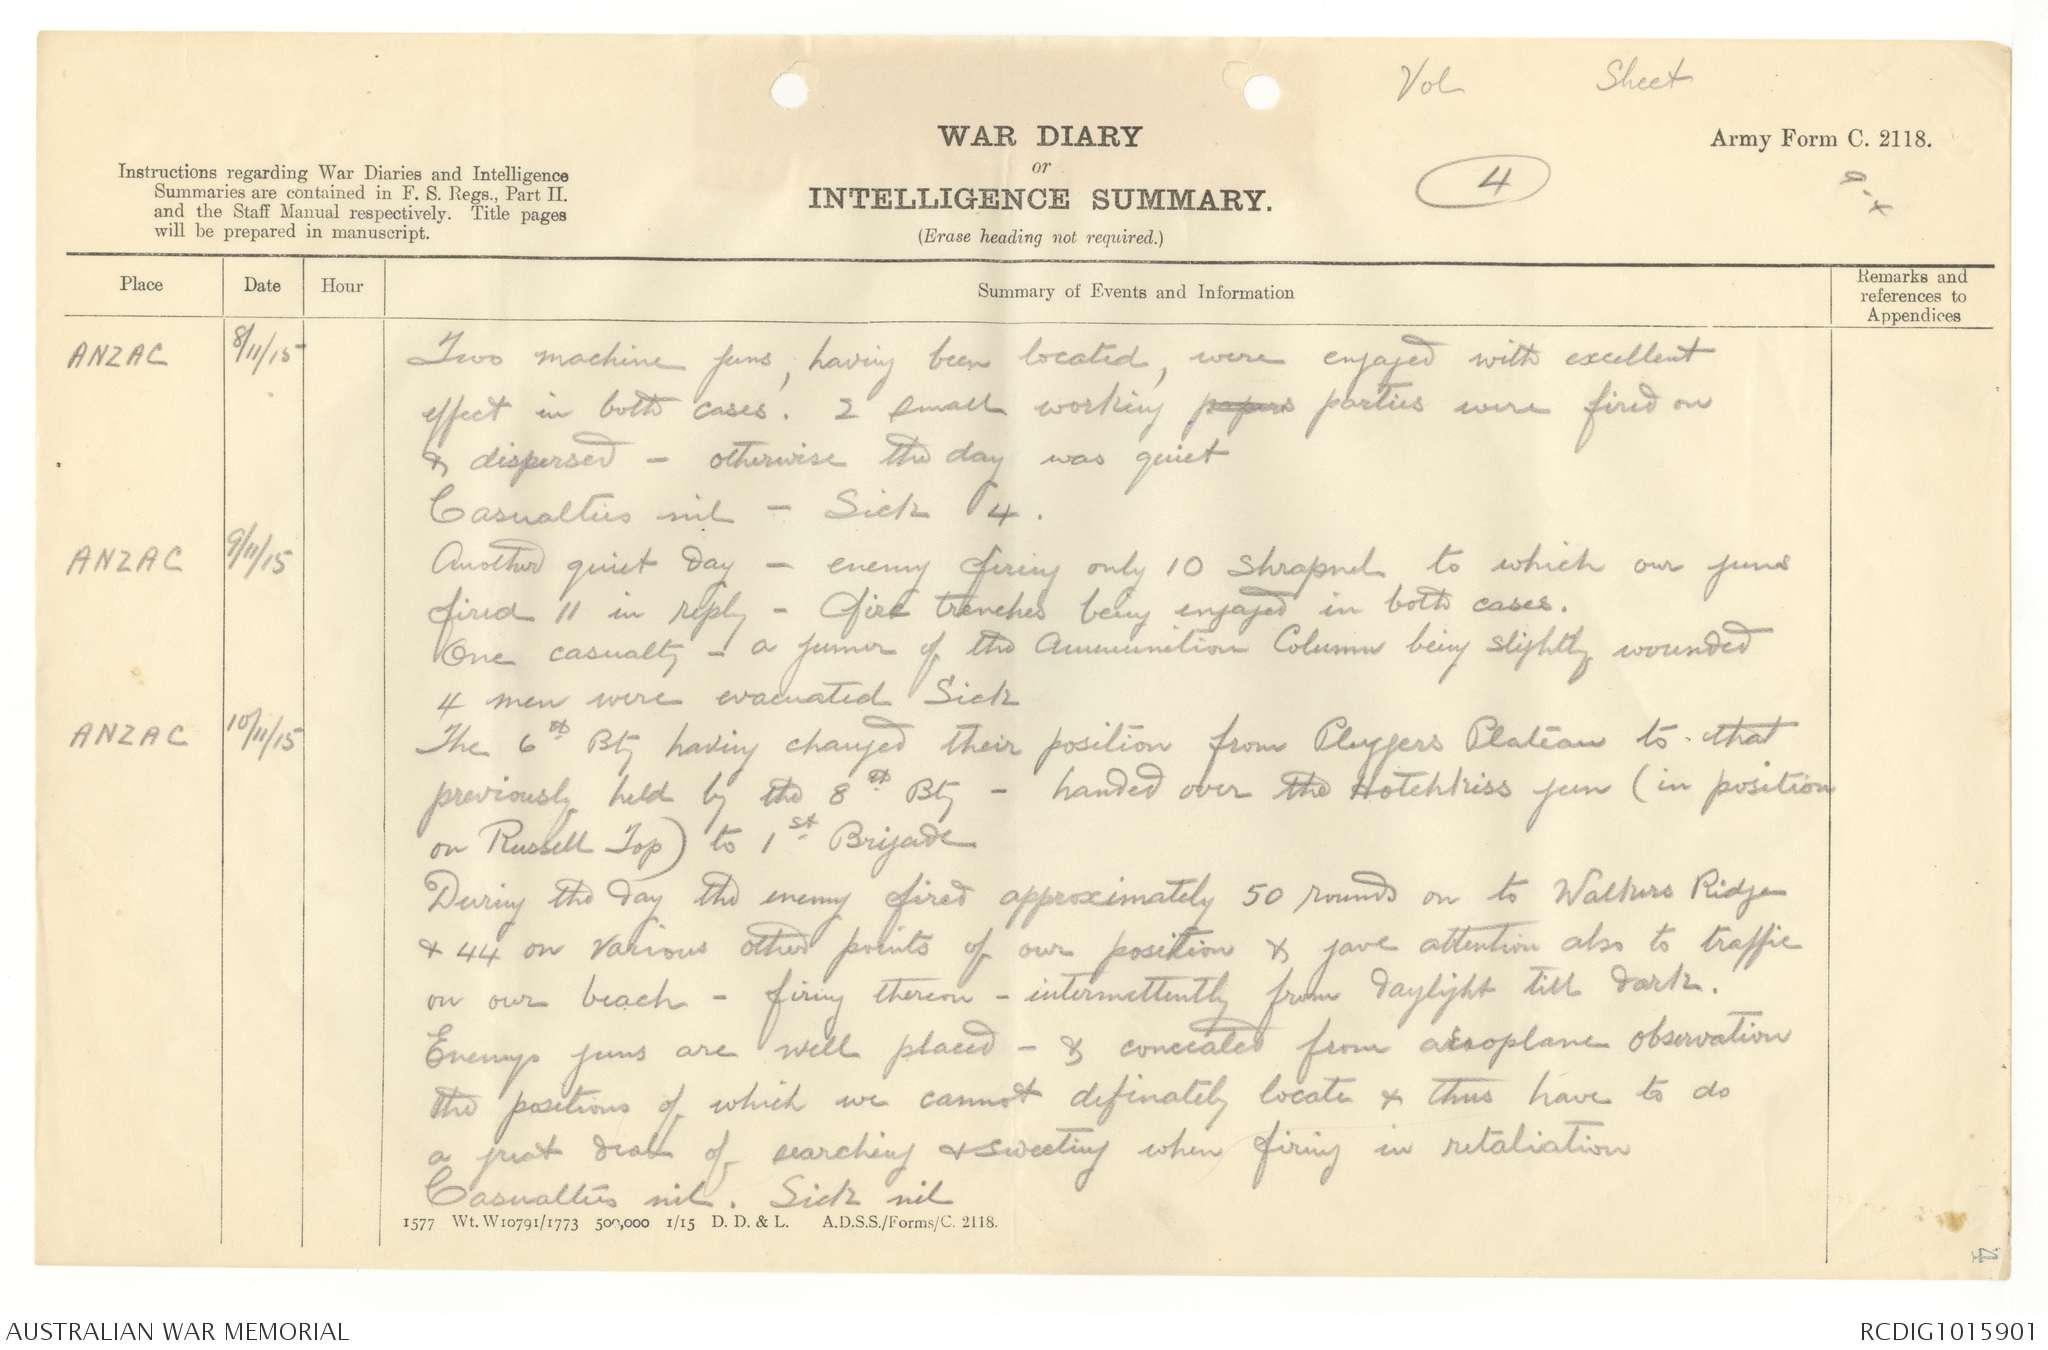 Vol Sheet
WAR DIARY
or
INTELLIGENCE SUMMARY.
(Erase heading not required.)
Army Form C. 2118.
4
Instructions regarding War Diaries and Intelligence
Summaries are contained in F. S. Regs., Part II.
and the Staff Manual respectively. Title pages
will be prepared in manuscript.
Place Date Hour Summary of Events and Information Remarks and
references to
Appendices
ANZAC 8/11/15 Two machine guns, having been located, were engaged with excellent
effect in both cases. 2 small working papers parties were fired on
& dispersed - otherwise the day was quiet
Casualties nil - Sick 4.
ANZAC 9/11/15 Another quiet day - enemy firing only 10 shrapnel to which our guns
fired 11 in reply - fire trenches being engaged in both cases.
One casualty - a gunner of the Ammunition Column being slightly wounded
4 men were evacuated Sick
ANZAC 10/11/15 The 6th Bty having changed their position from Pluggers Plateau to that
previously held by the 8th Bty - handed over the Hotchkiss gun (in position
on Russell Top) to 1st Brigade
During the day the enemy fired approximately 50 rounds on to Walkers Ridge
& 44 on various other points of our position & gave attention also to traffic
on our beach - firing thereon - intermettently from daylight till dark.
Enemys guns are well placed - & concealed from aeroplane observation
the positions of which we cannot definately locate & thus have to do
a great deal of searching & sweeting when firing in retaliation
Casualties nil. Sick nil
1577 Wt. W10791/1773 500,000 1/15 D. D. & L. A.D.S.S./Forms/C. 2118.
4
AUSTRALIAN WAR MEMORIAL RCDIG1015901